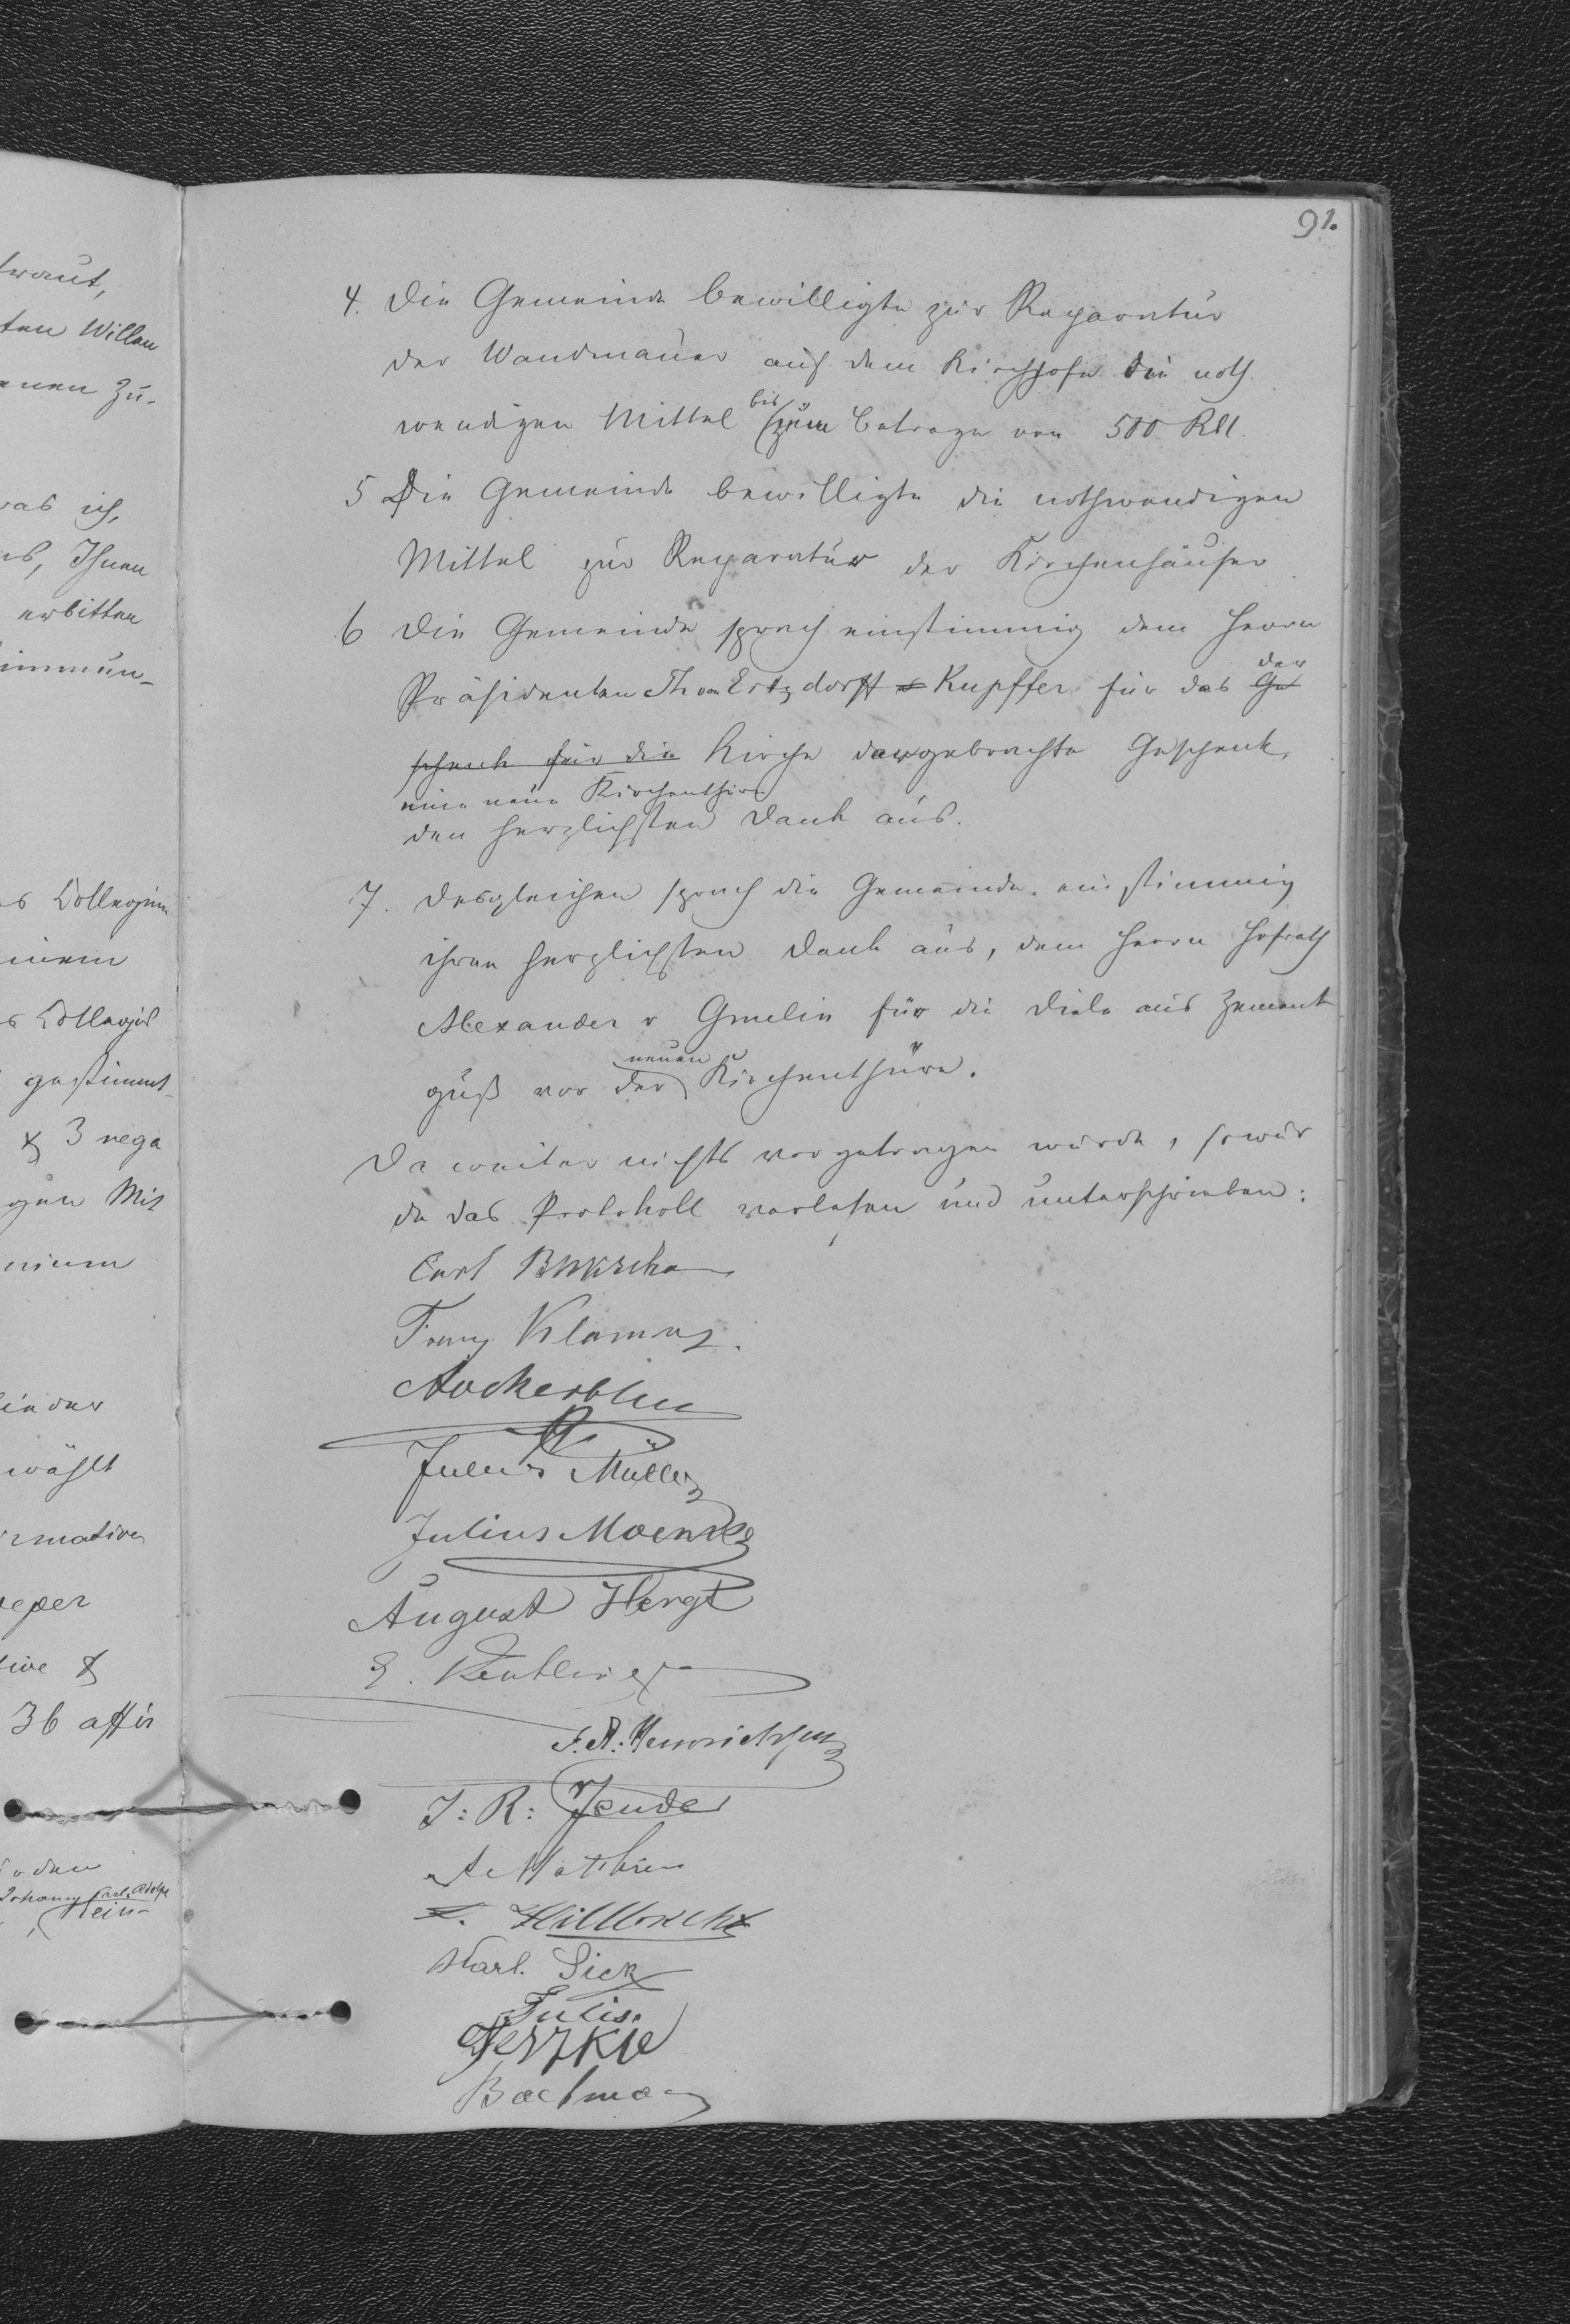 91.
4. Die Gemeinde bewilligte zur Reparatur
der Wandmauer auf dem Kirchhofe die noth
wendigen Mittel bis zum Betrage von 500 Rbl.
5 Die Gemeinde bewilligte die nothwendigen
Mittel zur Reparatur der Kirchenhäuser
6 Die Gemeinde sprach einstimmig dem Herrn
Präsidenten Th von Ertzdorff Kupffer für das der Ge
schenk für die Kirche dargebrachte Geschenk,
eine neue Kirchenthüre
den herzlichsten Dank aus.
7. Desgleichen sprach die Gemeinde einstimmig
ihren herzlichsten Dank aus, dem Herrn Hofrath
Alexander v Gmelin für die Diele aus Zement
guß vor der neuen Kirchenthüre.
Da weiter nichts vorgetragen wurde, so wur
de das Protokoll verlesen und unterschrieben:
Carl
Julius Müller
Julius
August Hergt
F. A. Henrichsen
J: R:
A
Hillbrecht
Karl. Sick
Julis.
traut,
ten Willen
enen Zu-
was ich,
Ihnen
erbitten
immun-
s Collegium
einem
s Collegii
gestimmt
& 3 nega
gen Mit
nium
wählt
rmative
tive &
36 affir
den
Johann Carl Adolf
Hein-